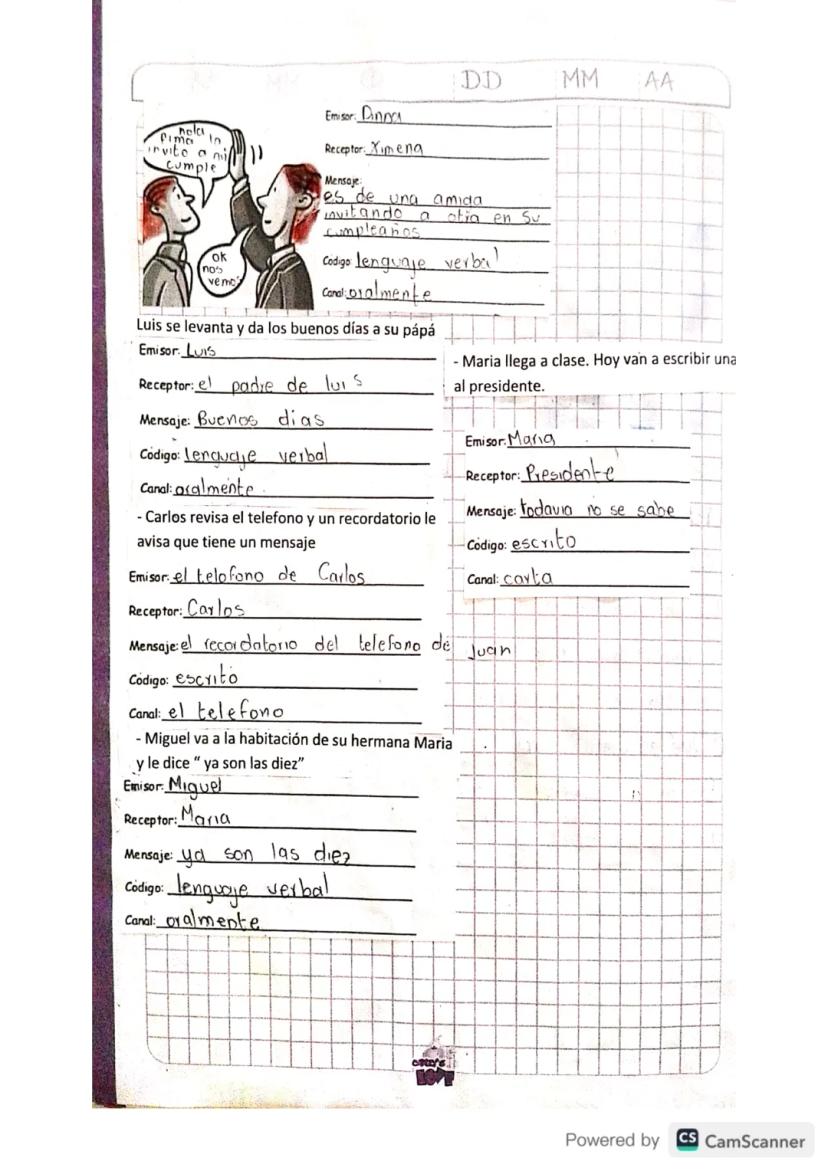 DD MM AA
hola
Pima la
invito a mi
cumple
ok
nos
vemos
Emisor: Dinna
Receptor: Ximena
Mensaje:
es de una amida
invitando a otra en su
cumpleaños
Código: lenguaje verbal
Canal: oralmente
Luis se levanta y da los buenos días a su pápá
Emisor: Luis
Receptor: el padre de luis
Mensaje: Buenos dias
Código: lenguaje verbal
Canal: oralmente
- Carlos revisa el telefono y un recordatorio le
avisa que tiene un mensaje
Emisor: el telofono de Carlos
Receptor: Carlos
Mensaje: el recordatorio del telefono de Juan
Código: escrito
Canal: el telefono
- Miguel va a la habitación de su hermana Maria
y le dice “ ya son las diez”
Emisor: Miguel
Receptor: Maria
Mensaje: ya son las diez
Código: lenguaje verbal
Canal: oralmente
- Maria llega a clase. Hoy van a escribir una
al presidente.
Emisor: Maria
Receptor: Presidente
Mensaje: todavia no se sabe
Código: escrito
Canal: carta
Powered by CS CamScanner